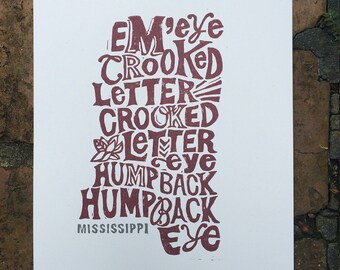 EM'eye
CROOKED
LETTER
CROOKED
LETTER
eye
HUMPBACK
HUMPBACK
MISSISSIPPI
Eye